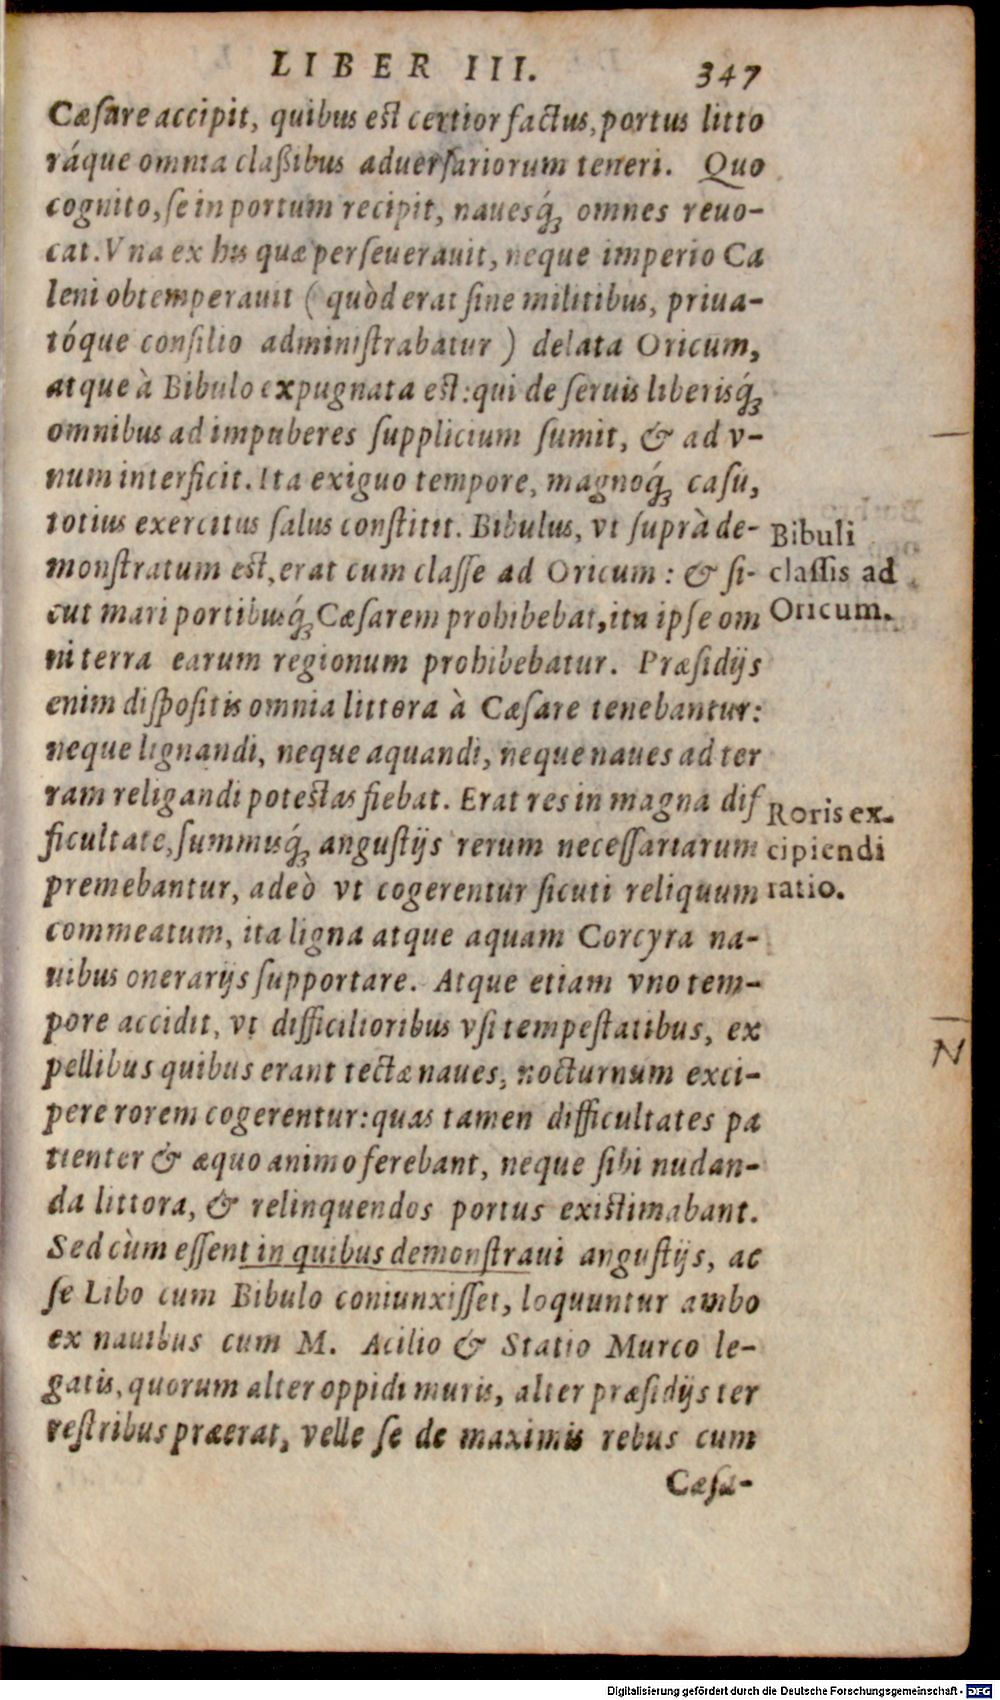 LIBER III. 347
Cæsare accipit, quibus est certior factus, portus litto
ráque omnia claßibus aduersariorum teneri. Quo
cognito, se in portum recipit, nauesq́; omnes reuo-
cat. Vna ex his quæ perseuerauit, neque imperio Ca
leni obtemperauit (quòd erat sine militibus, priua-
tóque consilio administrabatur) delata Oricum,
atque à Bibulo expugnata est: qui de seruis liberisq́;
omnibus ad impuberes supplicium sumit, & ad v-
num interficit. Ita exiguo tempore, magnoq́; casu,
totius exercitus salus constitit. Bibulus, vt suprà de-
monstratum est, erat cum classe ad Oricum: & si-
cut mari portibusq́; Cæsarem prohibebat, ita ipse om
ni terra earum regionum prohibebatur. Præsidijs
enim dispositis omnia littora à Cæsare tenebantur:
neque lignandi, neque aquandi, neque naues ad ter
ram religandi potestas fiebat. Erat res in magna dif
ficultate, summisq́; angustijs rerum necessariarum
premebantur, adeò vt cogerentur sicuti reliquum
commeatum, ita ligna atque aquam Corcyra na-
uibus onerarijs supportare. Atque etiam vno tem-
pore accidit, vt difficilioribus vsi tempestatibus, ex
pellibus quibus erant tectæ naues, nocturnum exci-
pere rorem cogerentur: quas tamen difficultates pa
tienter & æquo animo ferebant, neque sibi nudan-
da littora, & relinquendos portus existimabant.
Sed cùm essent in quibus demonstraui angustijs, ac
se Libo cum Bibulo coniunxisset, loquuntur ambo
ex nauibus cum M. Acilio & Statio Murco le-
gatis, quorum alter oppidi muris, alter præsidijs ter
restribus præerat, velle se de maximis rebus cum
Cæsa-
Bibuli
classis ad
Oricum.
Roris ex-
cipiendi
ratio.
N
Digitalisierung gefördert durch die Deutsche Forschungsgemeinschaft - DFG